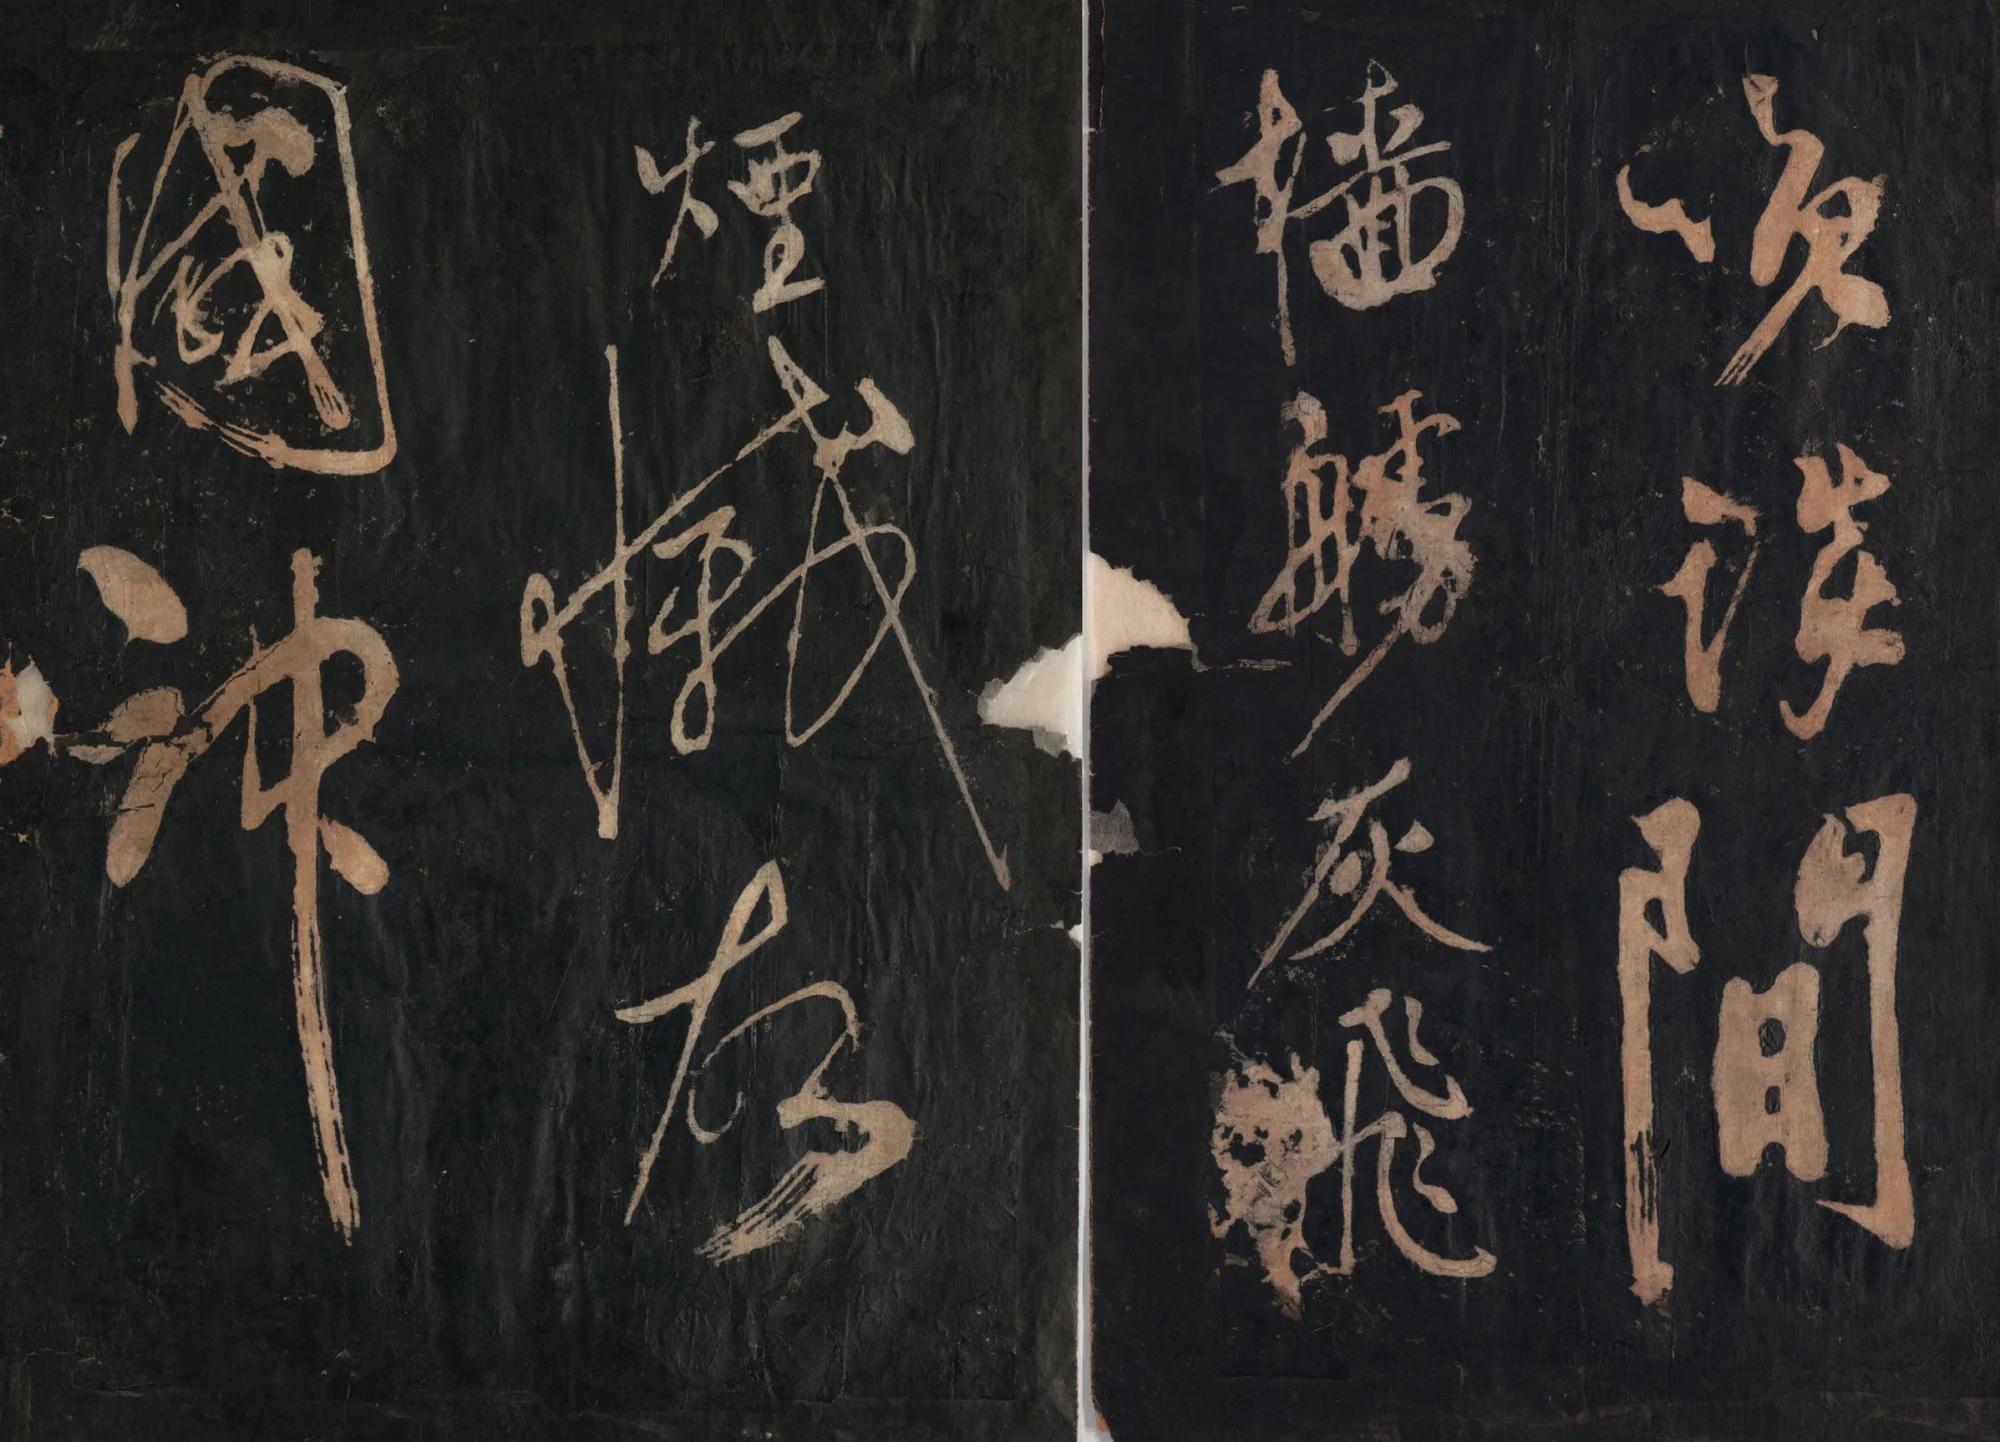 談間
檣艣灰飛
煙滅故
國神